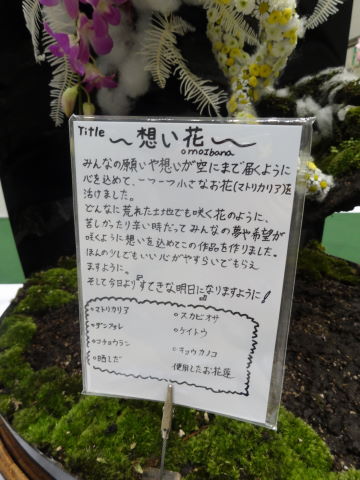 Title ～想い花～
omoibana
みんなの願いや想いが空にまで届くように
心を込めて、一つ一つ小さなお花(マトリカリア)を
活けました。
どんなに荒れた土地でも咲く花のように、
苦しかったり辛い時だってみんなの夢や希望が
咲くように想いを込めてこの作品を作りました。
ほんの少しでもいい心がやすらいでもらえ
ますように。
そして今日より『すてきな明日になりますように』!
○マトリカリア
○デンファレ
○コチョウラン
○晒しだ
○スカビオサ
○ケイトウ
○キョウカノコ
使用したお花達